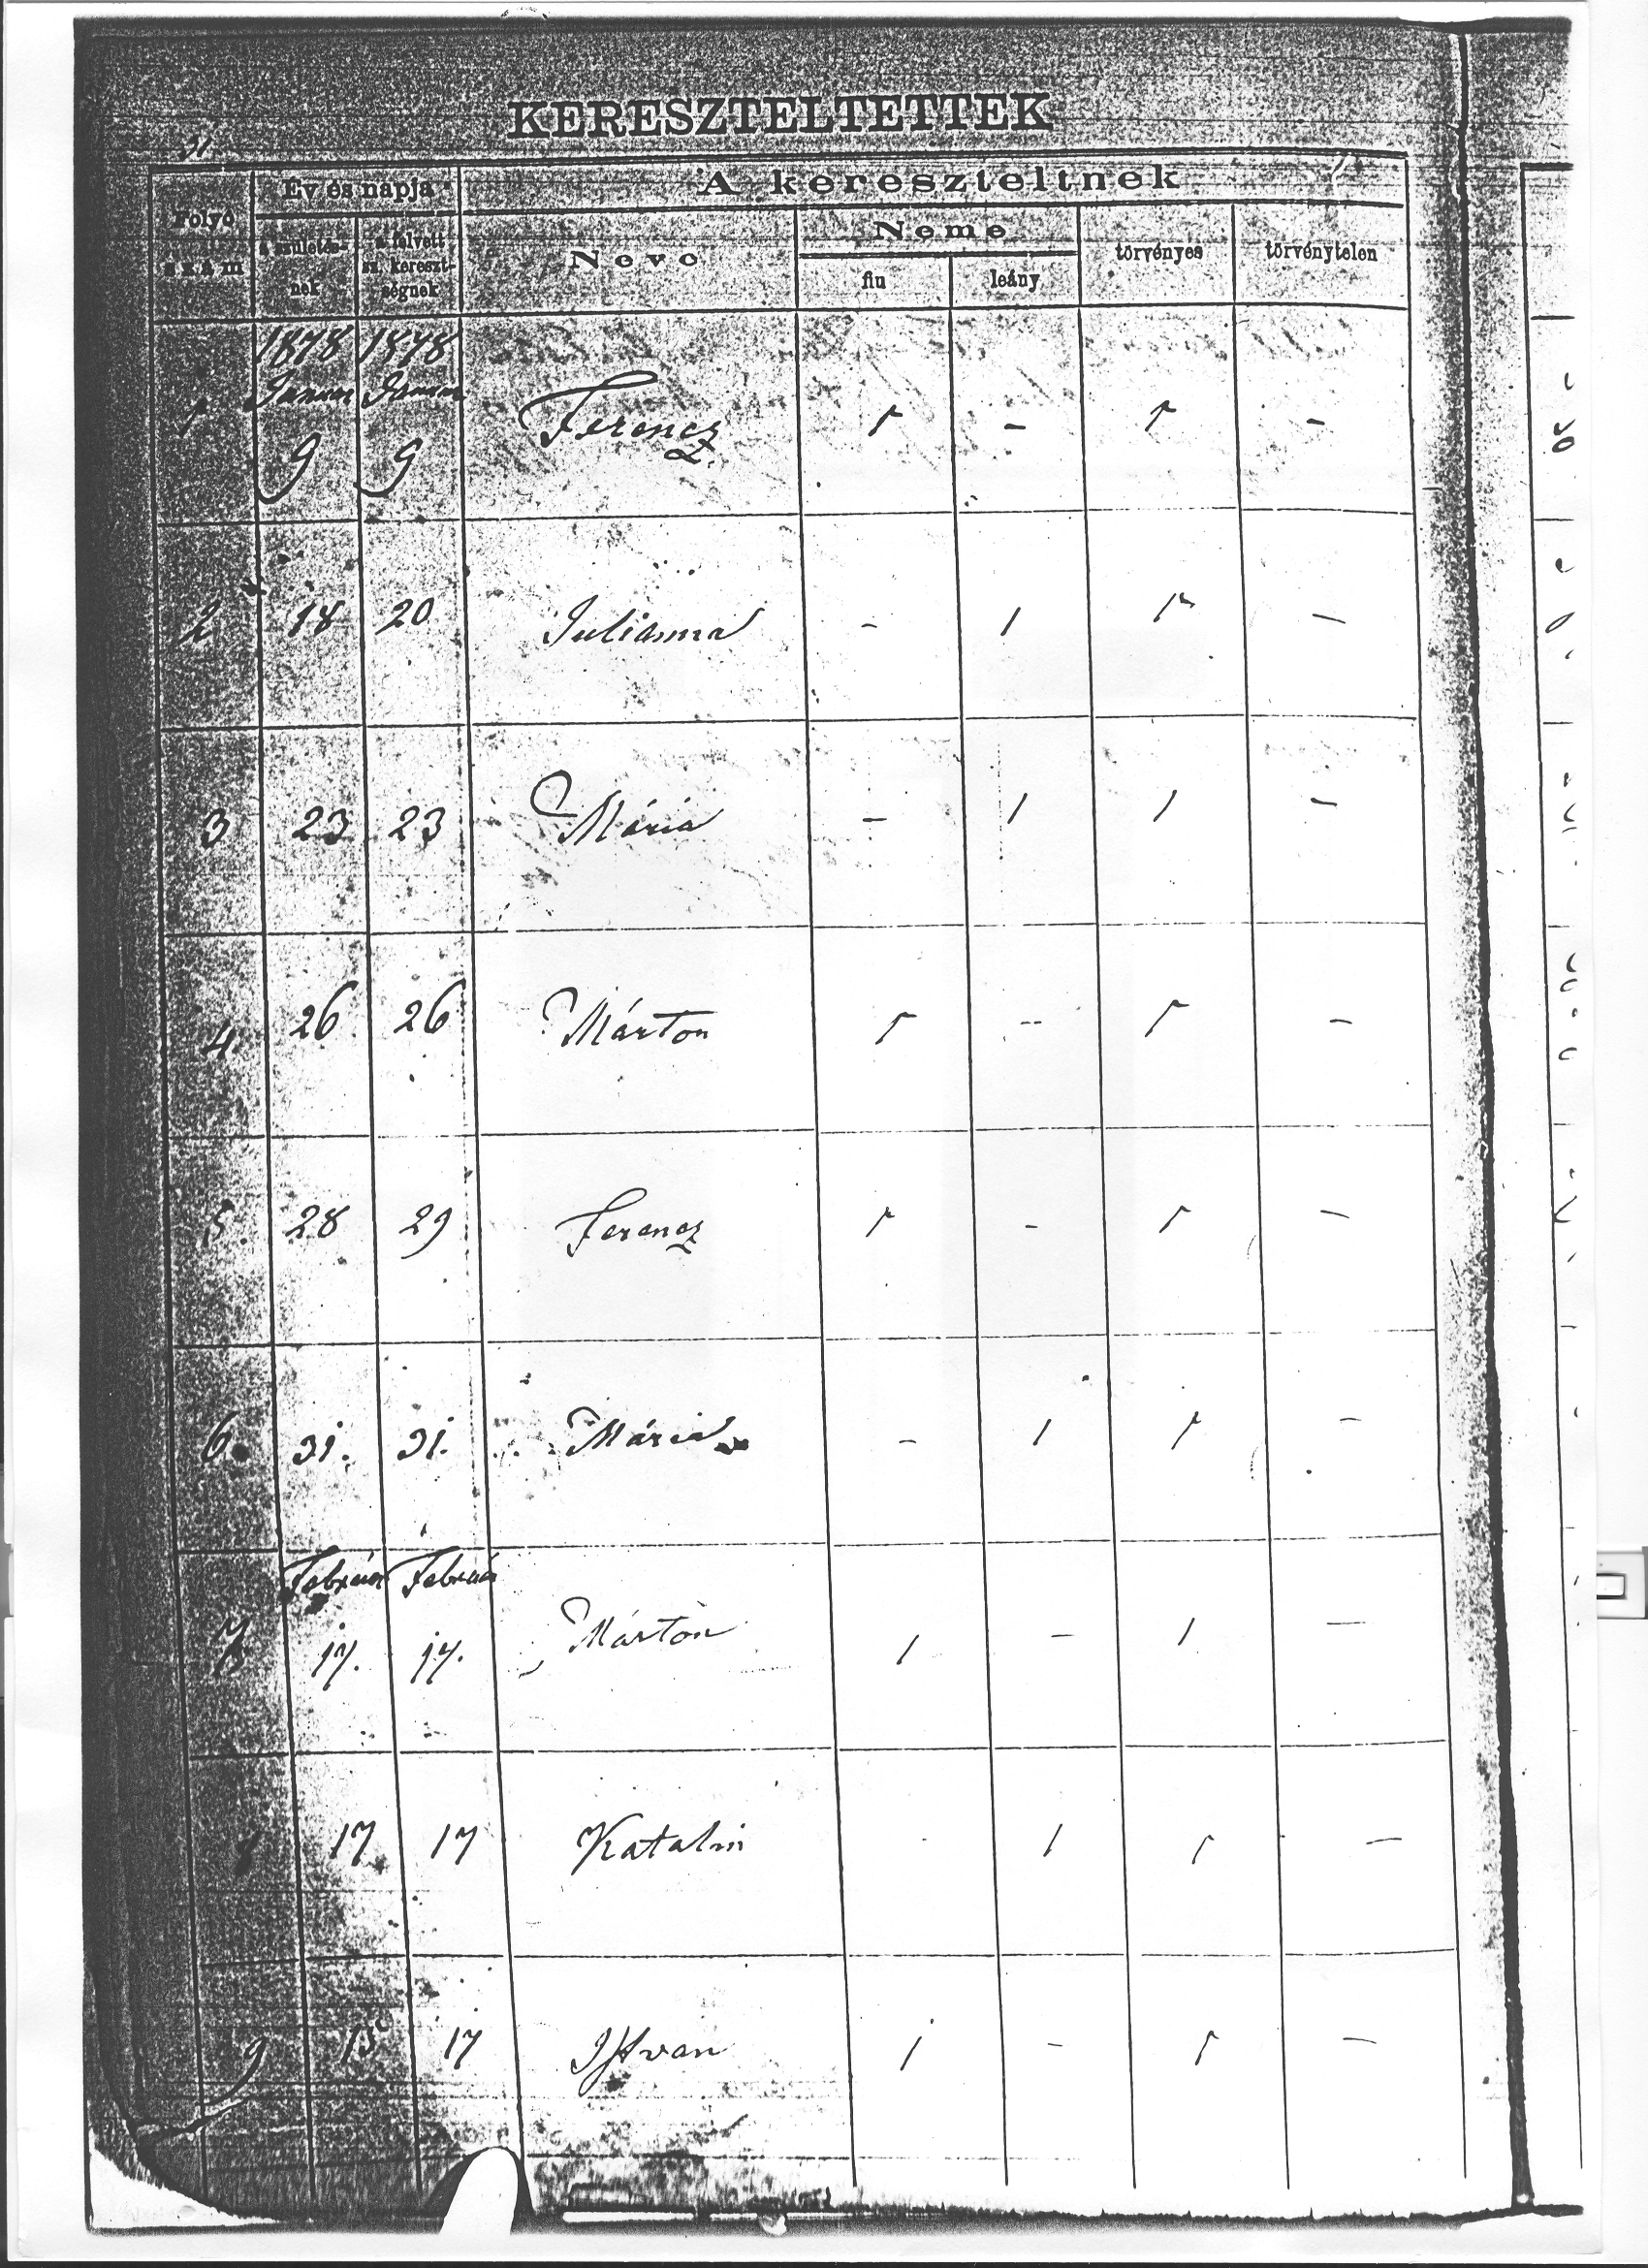 KERESZTELTETTEK
Folyó szám
Év és napja
a születés-
nek
a felvett
sz. kereszt-
ségnek
A kereszteltnek
Neve
Neme
fiu
leány
törvényes
törvénytelen
1878 1878
Januar Januar
1 9 9 Ferencz 1 - 1 -
2 18 20 Julianna - 1 1 -
3 23 23 Mária - 1 1 -
4 26 26 Márton 1 - 1 -
5 28 29 Ferencz 1 - 1 -
6. 31. 31. Mária - 1 1 -
Február Február
7 17. 17. Márton 1 - 1 -
8 17 17 Katalin 1 1 -
9 15 17 Istvan 1 - 1 -